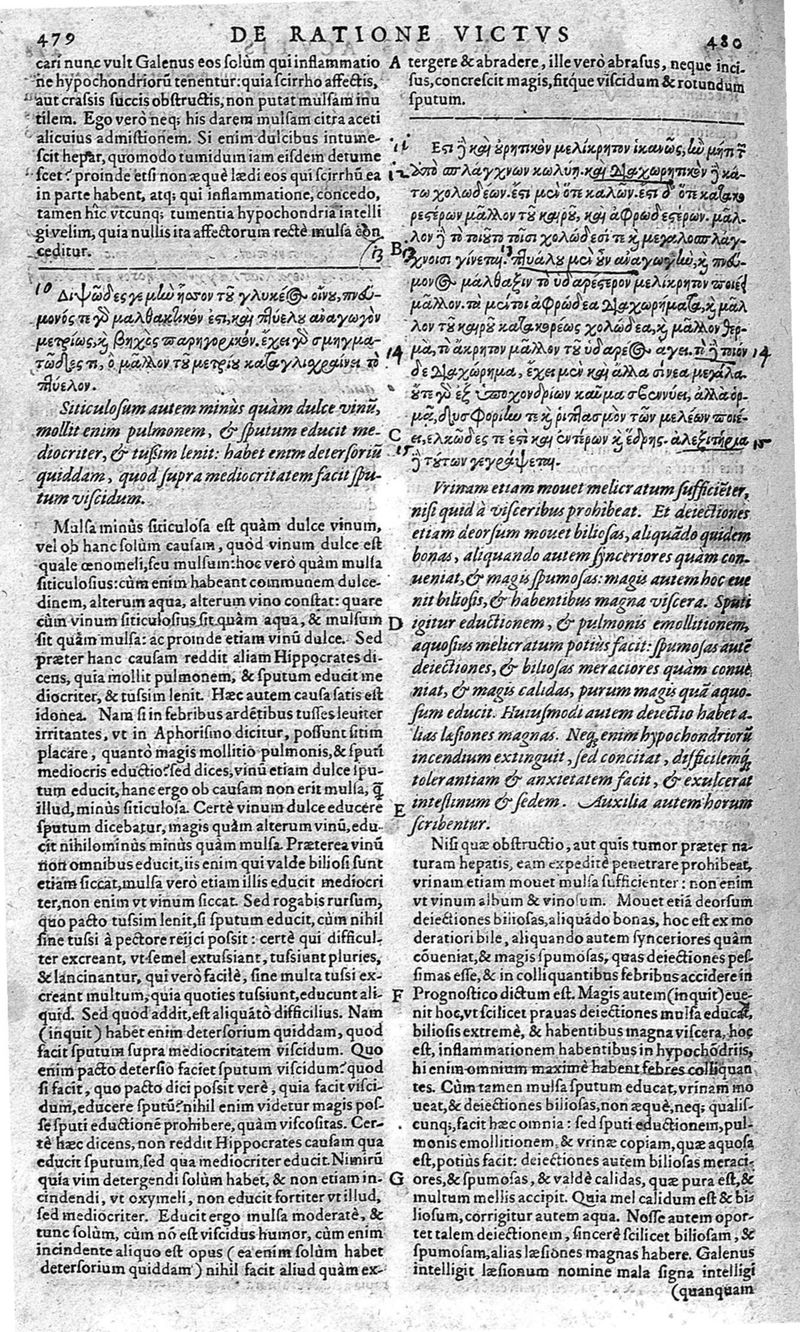 479
DE RATIONE VICTVS
480
cari nunc vult Galenus eos solùm qui inflammatio
ne hypochondriorū tenentur: quia scirrho affectis,
aut crassis succis obstructis, non putat mulsam inu
tilem. Ego verò neq; his darem mulsam citra aceti
alicuius admistionem. Si enim dulcibus intume-
scit hepar, quomodo tumidum iam eisdem detume
scet? proinde etsi non æquè lædi eos qui scirrhū ea
in parte habent, atq; qui inflammatione, concedo,
tamen hîc vtcunq; tumentia hypochondria intelli
gi velim, quia nullis ita affectorum rectè mulsa con
ceditur.
10
Διψῶδες γε μὴν ἧσσον τοῦ γλυκέος οἴνου, πνεύ-
μονός τε γὸ μαλθακτικόν ἐστι, καὶ πτυέλου ἀναγωγὸν
μετρίως, κ̀ βηχὸς παρηγορικόν. ἔχει γὸ σμηγμα-
τῶδές τι, ὃ μᾶλλον τοῦ μετρίου καταγλιχραίνει τὸ
πτύελον.
Siticulosum autem minùs quàm dulce vinū,
mollit enim pulmonem, & sputum educit me-
diocriter, & tußim lenit: habet enim detersoriū
quiddam, quod supra mediocritatem facit spu-
tum viscidum.
Mulsa minùs siticulosa est quàm dulce vinum,
vel ob hanc solùm causam, quòd vinum dulce est
quale œnomeli, seu mulsum: hoc verò quàm mulsa
siticulosius: cùm enim habeant communem dulce-
dinem, alterum aqua, alterum vino constat: quare
cùm vinum siticulosius sit quàm aqua, & mulsum
sit quàm mulsa: ac proinde etiam vinū dulce. Sed
præter hanc causam reddit aliam Hippocrates di
cens, quia mollit pulmonem, & sputum educit me
diocriter, & tussim lenit. Hæc autem causa satis est
idonea. Nam si in febribus ardētibus tusses leuiter
irritantes, vt in Aphorismo dicitur, possunt sitim
placare, quantò magis mollitio pulmonis, & sputi
mediocris eductio? sed dices, vinū etiam dulce spu-
tum educit, hanc ergo ob causam non erit mulsa, q̄
illud, minùs siticulosa. Certè vinum dulce educere
sputum dicebatur, magis quàm alterum vinū, edu-
cit nihilominùs minùs quàm mulsa. Præterea vinū
non omnibus educit, iis enim qui valde biliosi sunt
etiam siccat, mulsa verò etiam illis educit mediocri
ter, non enim vt vinum siccat. Sed rogabis rursum,
quo pacto tussim lenit, si sputum educit, cùm nihil
sine tussi à pectore reijci possit: certè qui difficul-
ter excreant, vt semel extussiant, tussiunt pluries,
& lancinantur, qui verò facilè, sine multa tussi ex-
creant multum, quia quoties tussiunt, educunt ali-
quid. Sed quod addit, est aliquātò difficilius. Nam
(inquit) habet enim detersorium quiddam, quod
facit sputum supra mediocritatem viscidum. Quo
enim pacto detersio faciet sputum viscidum? quod
si facit, quo pacto dici possit verè, quia facit visci-
dum, educere sputū? nihil enim videtur magis pos-
se sputi eductionē prohibere, quàm viscositas. Cer-
tè hæc dicens, non reddit Hippocrates causam qua
educit sputum, sed qua mediocriter educit. Nimirū
quia vim detergendi solùm habet, & non etiam in-
cindendi, vt oxymeli, non educit fortiter vt illud,
sed mediocriter. Educit ergo mulsa moderatè, &
tunc solùm, cùm nō est viscidus humor, cùm enim
incindente aliquo est opus (ea enim solùm habet
detersorium quiddam) nihil facit aliud quàm ex-
A
B
C
D
E
F
G
tergere & abradere, ille verò abrasus, neque inci-
sus, concrescit magis, fitque viscidum & rotundum
sputum.
11
Ἔστι ἢ καὶ οὐρητικὸν μελίκρητον ἱκανῶς, ἢν μή τι
12 ἀπὸ σπλάγχνων κωλύῃ. καὶ διαχωρητικὸν ἢ κά-
τω χολωδέων. ἔστι μὲν ὅτε καλῶν. ἔστι δ' ὅτε κατακο
ρεστέρων μᾶλλον τοῦ καιροῦ, καὶ ἀφρωδεστέρων. μᾶλ-
λον ἢ τὸ τοιοῦτο τοῖσι χολώδεσί τε κ̀ μεγαλοσπλάγ-
13 χνοισι γίνεται. 13 πτυάλου μὲν οὖν ἀναγωγὴν, κ̀ πνεύ-
μονος μάλθαξιν τὸ ὑδαρέστερον μελίκρητον ποιέει
μᾶλλον. τὰ μέν τοι ἀφρώδεα διαχωρήματα, κ̀ μᾶλ
λον τοῦ καιροῦ κατακορέως χολώδεα, κ̀ μᾶλλον θερ-
14 μὰ, τὸ ἄκρητον μᾶλλον τοῦ ὑδαρέος ἄγει. τὸ ἢ τοιόν 14
δε διαχώρημα, ἔχει μὲν καὶ ἄλλα σίνεα μεγάλα.
οὔτε γὸ ἐξ ὑποχονδρίων καῦμα σβεννύει, ἀλλὰ ὁρ-
μᾷ, δυσφορίην τε κ̀ ῥιπτασμὸν τῶν μελέων ποιέ-
ει, ἑλκῶδές τε ἐστὶ καὶ ἐντέρων κ̀ ἕδρης. ἀλεξιτήρια 15
15 ἢ τούτων γεγράψεται.
Vrinam etiam mouet melicratum sufficiēter,
nisi quid à visceribus prohibeat. Et deiectiones
etiam deorsum mouet biliosas, aliquādo quidem
bonas, aliquando autem synceriores quàm con-
ueniat, & magis spumosas: magis autem hoc eue
nit biliosis, & habentibus magna viscera. Sputi
igitur eductionem, & pulmonis emollitionem,
aquosius melicratum potiùs facit: spumosas autē
deiectiones, & biliosas meraciores quàm conue
niat, & magis calidas, purum magis quā aquo-
sum educit. Huiusmodi autem deiectio habet a-
lias læsiones magnas. Neq; enim hypochondriorū
incendium extinguit, sed concitat, difficilemq́;
tolerantiam & anxietatem facit, & exulcerat
intestinum & sedem. Auxilia autem horum
scribentur.
Nisi quæ obstructio, aut quis tumor præter na-
turam hepatis, eam expeditè penetrare prohibeat,
vrinam etiam mouet mulsa sufficienter: non enim
vt vinum album & vinosum. Mouet etiā deorsum
deiectiones biliosas, aliquādo bonas, hoc est ex mo
deratiori bile, aliquando autem synceriores quàm
cōueniat, & magis spumosas, quas deiectiones pes-
simas esse, & in colliquantibus febribus accidere in
Prognostico dictum est. Magis autem (inquit) eue-
nit hoc, vt scilicet prauas deiectiones mulsa educat,
biliosis extremè, & habentibus magna viscera, hoc
est, inflammationem habentibus in hypochōdriis,
hi enim omnium maximè habent febres colliquan
tes. Cùm tamen mulsa sputum educat, vrinam mo
ueat, & deiectiones biliosas, non æquè, neq; qualis-
cunq;, facit hæc omnia: sed sputi eductionem, pul-
monis emollitionem, & vrinæ copiam, quæ aquosa
est, potiùs facit: deiectiones autem biliosas meraci-
ores, & spumosas, & valdè calidas, quæ pura est, &
multum mellis accipit. Quia mel calidum est & bi-
liosum, corrigitur autem aqua. Nosse autem opor-
tet talem deiectionem, sincerè scilicet biliosam, &
spumosam, alias læsiones magnas habere. Galenus
intelligit læsionum nomine mala signa intelligi
(quanquam